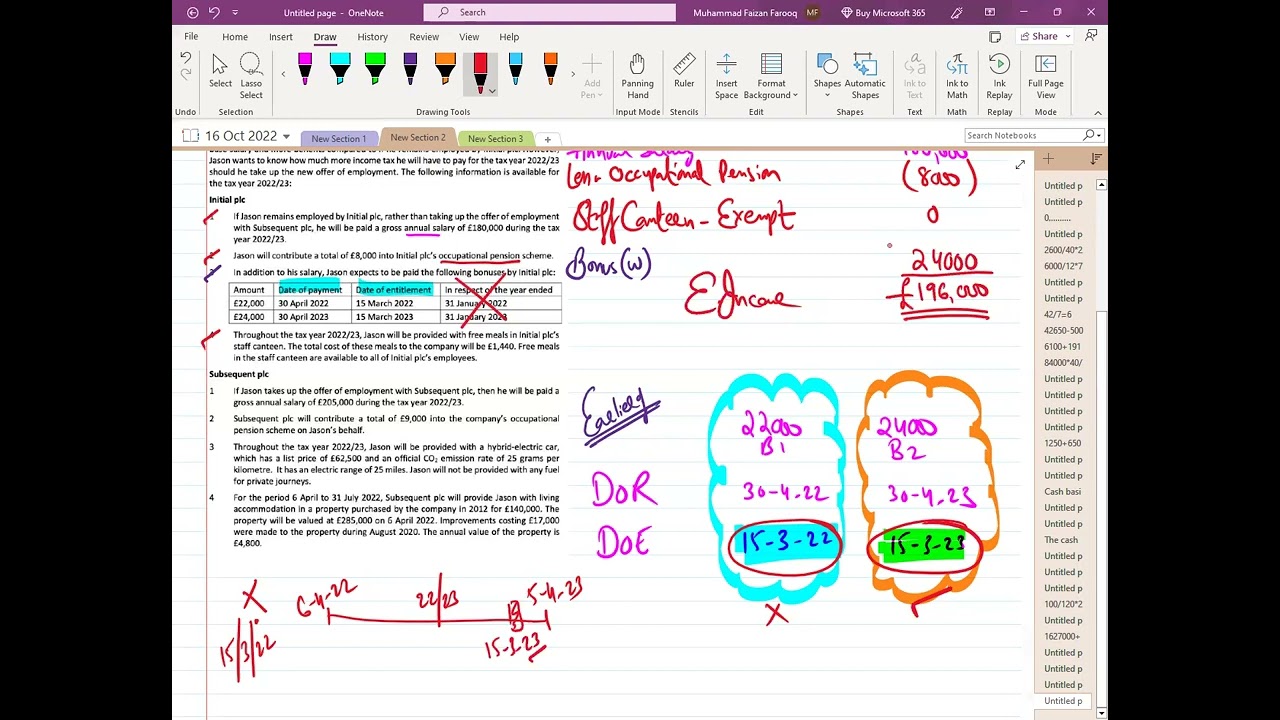 Untitled page - OneNote
Search
Muhammad Faizan Farooq
MF
Buy Microsoft 365
File Home Insert Draw History Review View Help
Share
Undo
Select
Lasso Select
Add Pen
Panning Hand
Ruler
Insert Space
Format Background
Shapes
Automatic Shapes
Ink to Text
Ink to Math
Ink Replay
Full Page View
Undo Selection Drawing Tools Input Mode Stencils Edit Shapes Text Math Replay Mode
16 Oct 2022
New Section 1
New Section 2
New Section 3
Search Notebooks
Jason wants to know how much more income tax he will have to pay for the tax year 2022/23
should he take up the new offer of employment. The following information is available for
the tax year 2022/23:
Initial plc
If Jason remains employed by Initial plc, rather than taking up the offer of employment
with Subsequent plc, he will be paid a gross annual salary of £180,000 during the tax
year 2022/23.
Jason will contribute a total of £8,000 into Initial plc's occupational pension scheme.
In addition to his salary, Jason expects to be paid the following bonuses by Initial plc:
Amount Date of payment Date of entitlement In respect of the year ended
£22,000 30 April 2022 15 March 2022 31 January 2022
£24,000 30 April 2023 15 March 2023 31 January 2023
Throughout the tax year 2022/23, Jason will be provided with free meals in Initial plc's
staff canteen. The total cost of these meals to the company will be £1,440. Free meals
in the staff canteen are available to all of Initial plc's employees.
Subsequent plc
1 If Jason takes up the offer of employment with Subsequent plc, then he will be paid a
gross annual salary of £205,000 during the tax year 2022/23.
2 Subsequent plc will contribute a total of £9,000 into the company's occupational
pension scheme on Jason's behalf.
3 Throughout the tax year 2022/23, Jason will be provided with a hybrid-electric car,
which has a list price of £62,500 and an official CO₂ emission rate of 25 grams per
kilometre. It has an electric range of 25 miles. Jason will not be provided with any fuel
for private journeys.
4 For the period 6 April to 31 July 2022, Subsequent plc will provide Jason with living
accommodation in a property purchased by the company in 2012 for £140,000. The
property will be valued at £285,000 on 6 April 2022. Improvements costing £17,000
were made to the property during August 2020. The annual value of the property is
£4,800.
X
15/3/22
6-4-22
22/23
5-4-23
15-3-23
Occupational Pension (8000)
Staff Canteen - Exempt 0
Bonus (W) 24000
E Income £196,000
Earlier of
22000 24000
B1 B2
DoR 30-4-22 30-4-23
DoE 15-3-22 15-3-23
X
Untitled p
Untitled p
0..........
Untitled p
2600/40*2
6000/12*7
Untitled p
Untitled p
42/7=6
42650-500
6100+191
84000*40/
Untitled p
Untitled p
Untitled p
1250+650
Untitled p
Untitled p
Cash basi
Untitled p
The cash
Untitled p
Untitled p
100/120*2
Untitled p
1627000+
Untitled p
Untitled p
Untitled p